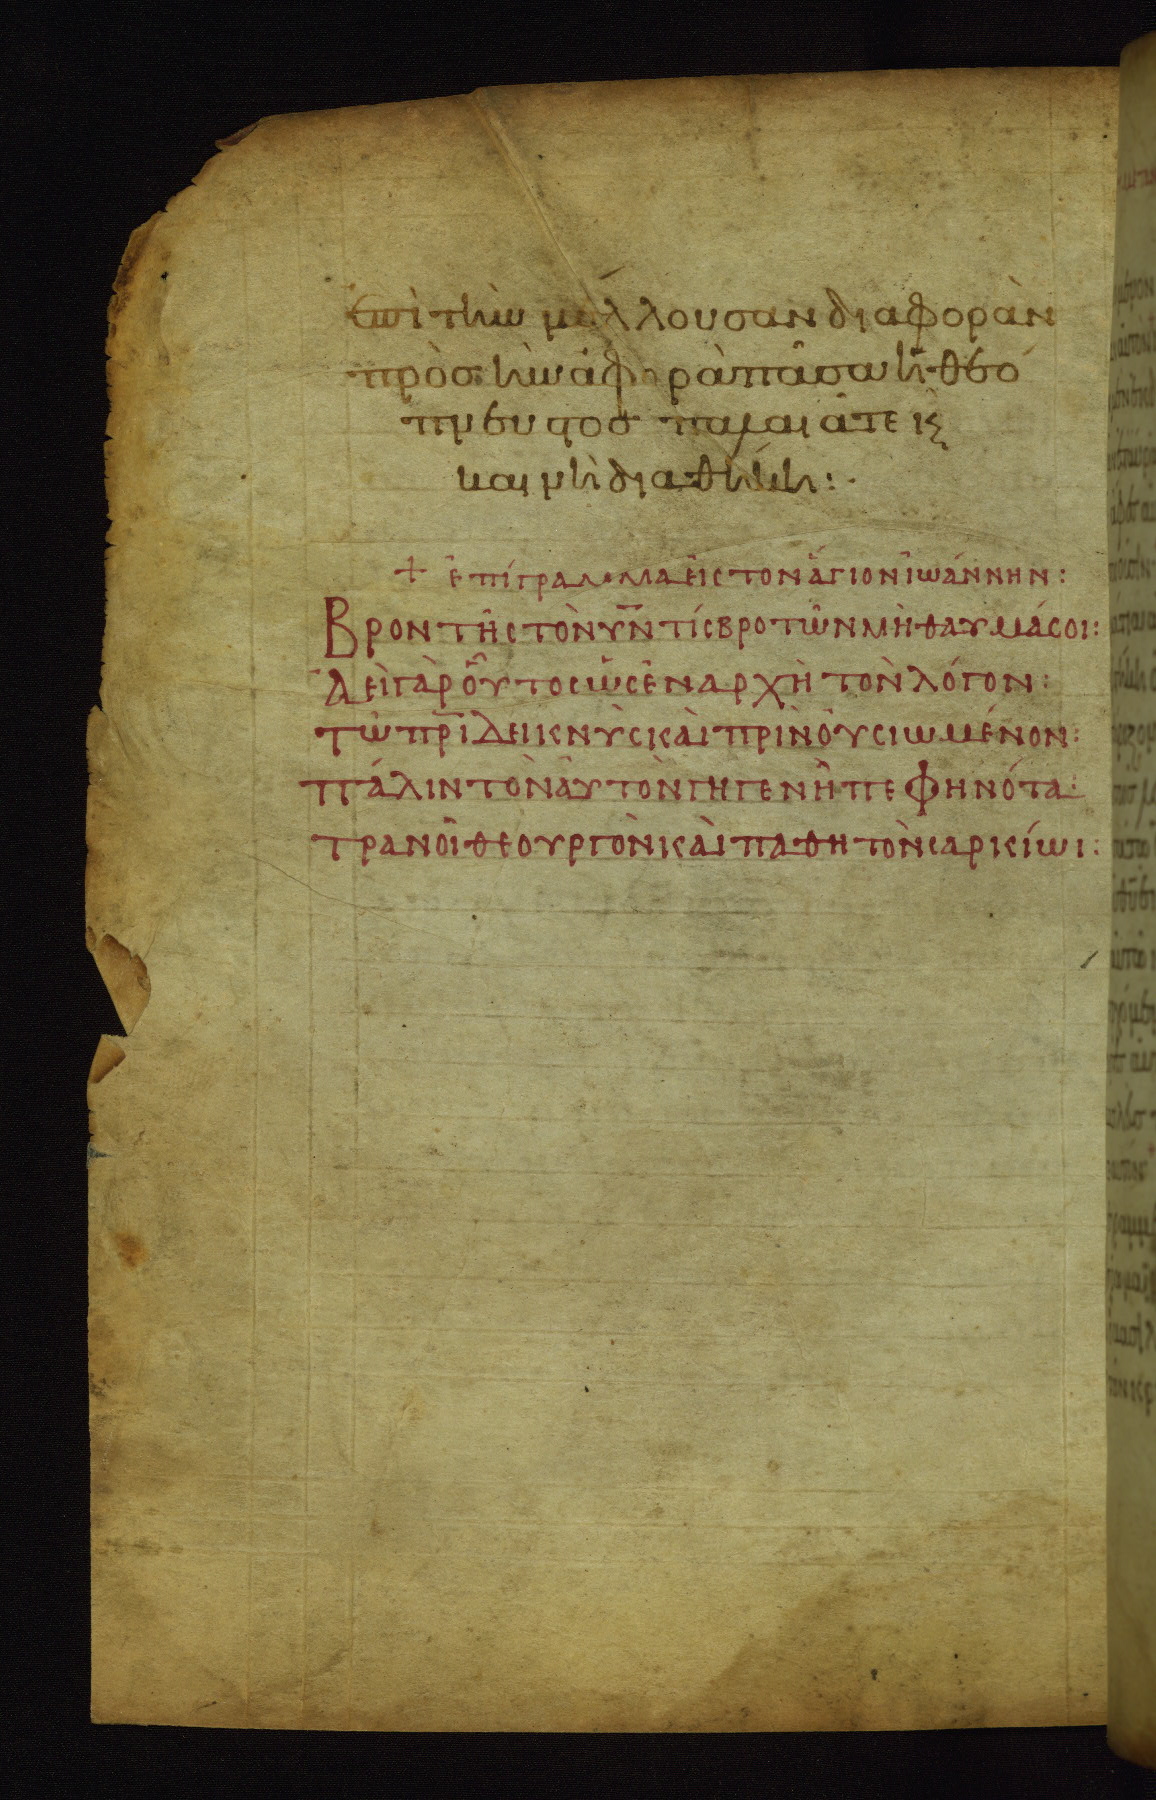 ἐπὶ τὴν μέλλουσαν διαφορὰν
πρὸς τὴν ἀφορᾶ πᾶσα ἡ θεό
πνευστος παλαιά τε κς
καινὴ διαθήκη:·
+ ἐπίγραμμα εἰς τον ἅγιον ἰωάννην:
Βροντῆς τὸν ῡν τίς βροτῶν μὴ θαυμάσοι:
Δεὶ γὰρ οὗτος ὡς ἐν ἀρχῇ τὸν λόγον:
τῶ πρ̅ι δεικνὺς καὶ πρὶν οὐσιωμένον:
πάλιν τὸν ἀυτὸν γηγενῆ πεφηνότα:
τρανοῖ θεουργὸν καὶ παθητὸν σαρκίωι: